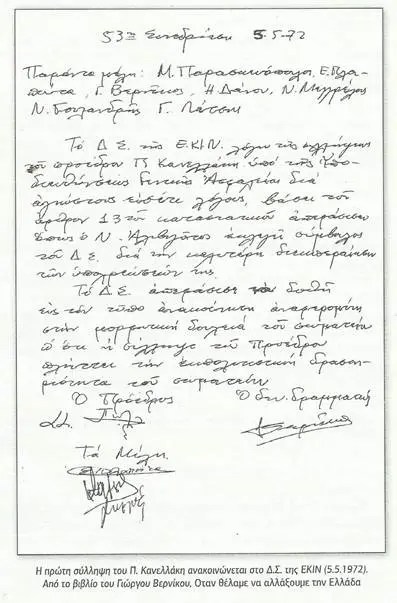 53η Συνεδρίαση 5.5.72
Παρόντα μέλη: Μ. Παρασκευόπουλος, Ε. Πλα-
Γ. Βερνίκος, Η Δάνου, Ν.
Ν. Γουλανδρής Γ. Λάτσης
Τό Δ.Σ. της Ε.ΚΙ.Ν. λόγω της συλλήψεως
τοῦ προέδρου Π Κανελλάκη ὑπό της Υπο-
διευθύνσεως Γενικης Ασφαλείας διά
αγνώστους εισέτι λόγους, βάσει τοῦ
άρθρου 13 τοῦ καταστατικού απεφάσισε
όπως ο Ν. Αλιβιζάτος εκλεγή σύμβουλος
τοῦ Δ.Σ. διά την καλυτέρα διεκπεραίωση
των υποχρεώσεών της.
Τό Δ.Σ. απεφάσισε να δοθή
εις τον τύπο ανακοίνωση αναφερομένη
στην μορφωτική δουλειά τοῦ σωματείου
ότι η σύλληψις τοῦ Προέδρου
πλήττει την εκπολιτιστική δρασ
τηριότητα τοῦ σωματείου
Ο Πρόεδρος Ο Γεν. Γραμματεύς
Τά Μέλη
Η πρώτη σύλληψη του Π. Κανελλάκη ανακοινώνεται στο Δ.Σ. της ΕΚΙΝ (5.5.1972).
Από το βιβλίο του Γιώργου Βερνίκου, Όταν θέλαμε να αλλάξουμε την Ελλάδα